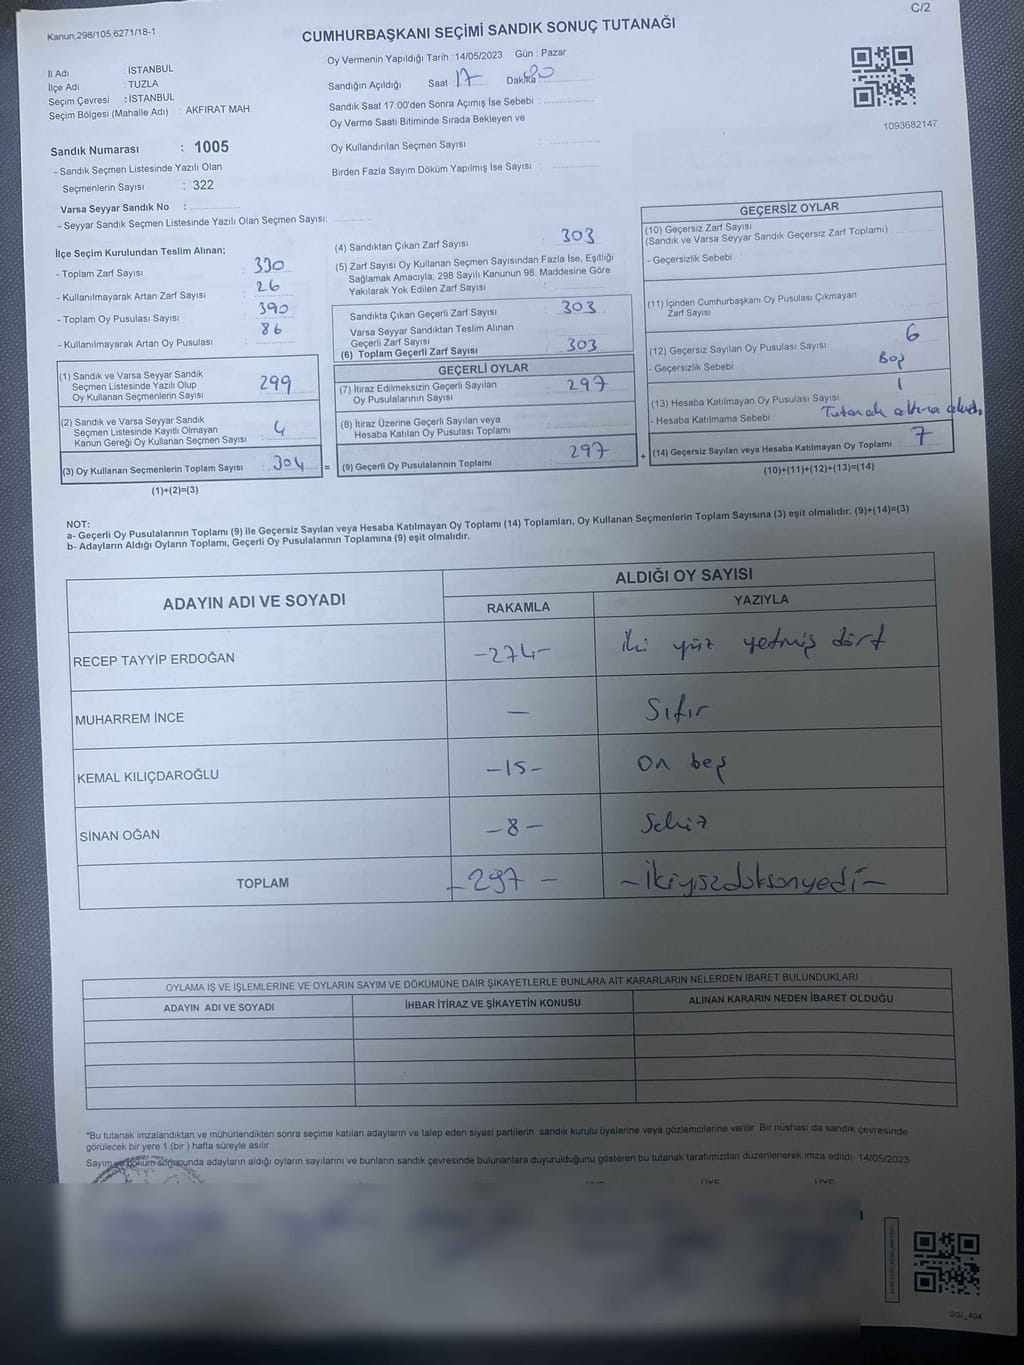 Kanun,298/105,6271/18-1
C/2
CUMHURBAŞKANI SEÇİMİ SANDIK SONUÇ TUTANAĞI
İl Adı : İSTANBUL
İlçe Adı : TUZLA
Seçim Çevresi : İSTANBUL
Seçim Bölgesi (Mahalle Adı) : AKFIRAT MAH.
Sandık Numarası : 1005
- Sandık Seçmen Listesinde Yazılı Olan
Seçmenlerin Sayısı : 322
Varsa Seyyar Sandık No :
- Seyyar Sandık Seçmen Listesinde Yazılı Olan Seçmen Sayısı:
Oy Vermenin Yapıldığı Tarih : 14/05/2023 Gün : Pazar
Sandığın Açıldığı Saat 17 Dakika
Sandık Saat 17:00'den Sonra Açımış İse Sebebi :
Oy Verme Saati Bitiminde Sırada Bekleyen ve
Oy Kullandırılan Seçmen Sayısı :
Birden Fazla Sayım Döküm Yapılmış İse Sayısı :
1093682147
İlçe Seçim Kurulundan Teslim Alınan;
- Toplam Zarf Sayısı : 330
- Kullanılmayarak Artan Zarf Sayısı : 26
- Toplam Oy Pusulası Sayısı : 390
- Kullanılmayarak Artan Oy Pusulası : 86
(1) Sandık ve Varsa Seyyar Sandık
Seçmen Listesinde Yazılı Olup
Oy Kullanan Seçmenlerin Sayısı : 299
(2) Sandık ve Varsa Seyyar Sandık
Seçmen Listesinde Kayıtlı Olmayan
Kanun Gereği Oy Kullanan Seçmen Sayısı : 4
(3) Oy Kullanan Seçmenlerin Toplam Sayısı : 304
(1)+(2)=(3)
(4) Sandıktan Çıkan Zarf Sayısı : 303
(5) Zarf Sayısı Oy Kullanan Seçmen Sayısından Fazla İse, Eşitliği
Sağlamak Amacıyla; 298 Sayılı Kanunun 98. Maddesine Göre
Yakılarak Yok Edilen Zarf Sayısı :
Sandıkta Çıkan Geçerli Zarf Sayısı : 303
Varsa Seyyar Sandıktan Teslim Alınan
Geçerli Zarf Sayısı :
(6) Toplam Geçerli Zarf Sayısı : 303
GEÇERLİ OYLAR
(7) İtiraz Edilmeksizin Geçerli Sayılan
Oy Pusulalarının Sayısı : 297
(8) İtiraz Üzerine Geçerli Sayılan veya
Hesaba Katılan Oy Pusulası Toplamı :
= (9) Geçerli Oy Pusulalarının Toplamı : 297
GEÇERSİZ OYLAR
(10) Geçersiz Zarf Sayısı
(Sandık ve Varsa Seyyar Sandık Geçersiz Zarf Toplamı) :
- Geçersizlik Sebebi :
(11) İçinden Cumhurbaşkanı Oy Pusulası Çıkmayan
Zarf Sayısı :
(12) Geçersiz Sayılan Oy Pusulası Sayısı : 6
- Geçersizlik Sebebi : Boş
(13) Hesaba Katılmayan Oy Pusulası Sayısı : 1
- Hesaba Katılmama Sebebi : Tutanak altına alındı.
+ (14) Geçersiz Sayılan veya Hesaba Katılmayan Oy Toplamı : 7
(10)+(11)+(12)+(13)=(14)
NOT:
a- Geçerli Oy Pusulalarının Toplamı (9) ile Geçersiz Sayılan veya Hesaba Katılmayan Oy Toplamı (14) Toplamları, Oy Kullanan Seçmenlerin Toplam Sayısına (3) eşit olmalıdır. (9)+(14)=(3)
b- Adayların Aldığı Oyların Toplamı, Geçerli Oy Pusulalarının Toplamına (9) eşit olmalıdır.
ADAYIN ADI VE SOYADI
ALDIĞI OY SAYISI
RAKAMLA YAZIYLA
RECEP TAYYİP ERDOĞAN -274- iki yüz yetmiş dört
MUHARREM İNCE — Sıfır
KEMAL KILIÇDAROĞLU -15- On beş
SİNAN OĞAN -8- Sekiz
TOPLAM -297- -ikiyüzdoksanyedi-
OYLAMA İŞ VE İŞLEMLERİNE VE OYLARIN SAYIM VE DÖKÜMÜNE DAİR ŞİKAYETLERLE BUNLARA AİT KARARLARIN NELERDEN İBARET BULUNDUKLARI
ADAYIN ADI VE SOYADI İHBAR İTİRAZ VE ŞİKAYETİN KONUSU ALINAN KARARIN NEDEN İBARET OLDUĞU
*Bu tutanak imzalandıktan ve mühürlendikten sonra seçime katılan adayların ve talep eden siyasi partilerin sandık kurulu üyelerine veya gözlemcilerine verilir. Bir nüshası da sandık çevresinde
görülecek bir yere 1 (bir) hafta süreyle asılır.
Sayım ve döküm sonucunda adayların aldığı oyların sayılarını ve bunların sandık çevresinde bulunanlara duyurulduğunu gösteren bu tutanak tarafımızdan düzenlenerek imza edildi. 14/05/2023
SSI_404